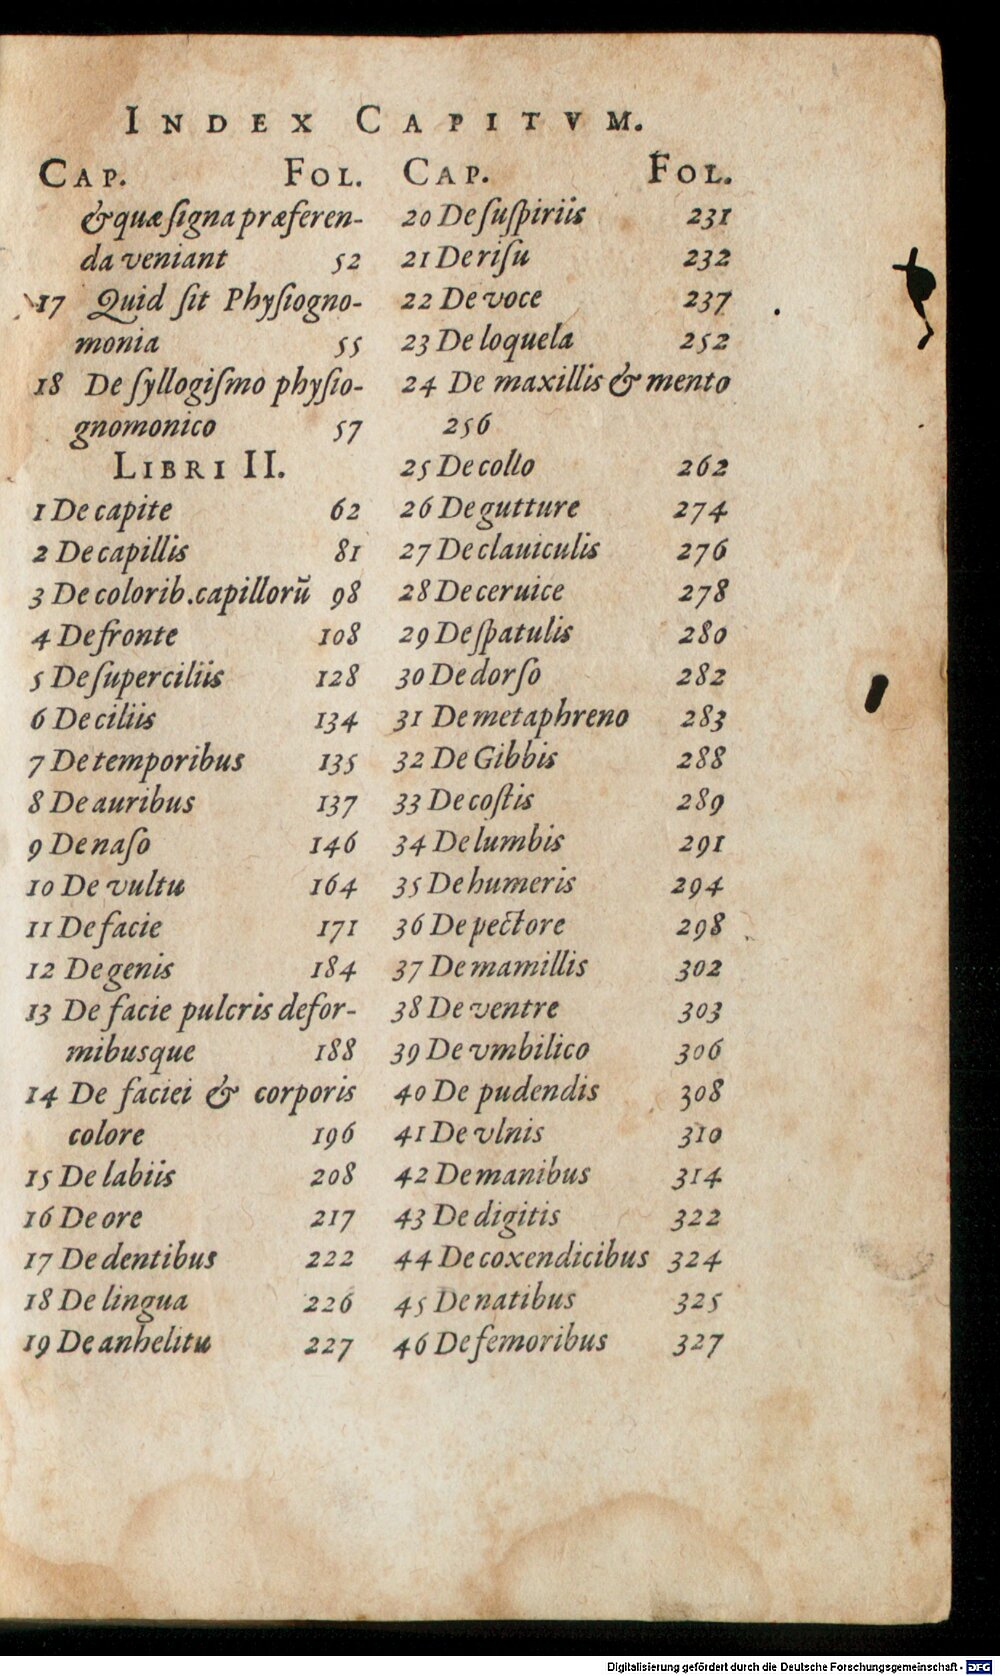 INDEX CAPITVM.
CAP. FOL.
& quæ ſigna præferen-
da veniant 52
17 Quid ſit Phyſiogno-
monia 55
18 De ſyllogiſmo phyſio-
gnomonico 57
LIBRI II.
1 De capite 62
2 De capillis 81
3 De colorib. capillorũ 98
4 De fronte 108
5 De ſuperciliis 128
6 De ciliis 134
7 De temporibus 135
8 De auribus 137
9 De naſo 146
10 De vultu 164
11 De facie 171
12 De genis 184
13 De facie pulcris defor-
mibusque 188
14 De faciei & corporis
colore 196
15 De labiis 208
16 De ore 217
17 De dentibus 222
18 De lingua 226
19 De anhelitu 227
CAP. FOL.
20 De ſuſpiriis 231
21 De riſu 232
22 De voce 237
23 De loquela 252
24 De maxillis & mento
256
25 De collo 262
26 De gutture 274
27 De clauiculis 276
28 De ceruice 278
29 De ſpatulis 280
30 De dorſo 282
31 De metaphreno 283
32 De Gibbis 288
33 De coſtis 289
34 De lumbis 291
35 De humeris 294
36 De pectore 298
37 De mamillis 302
38 De ventre 303
39 De vmbilico 306
40 De pudendis 308
41 De vlnis 310
42 De manibus 314
43 De digitis 322
44 De coxendicibus 324
45 De natibus 325
46 De femoribus 327
Digitalisierung gefördert durch die Deutsche Forschungsgemeinschaft - DFG